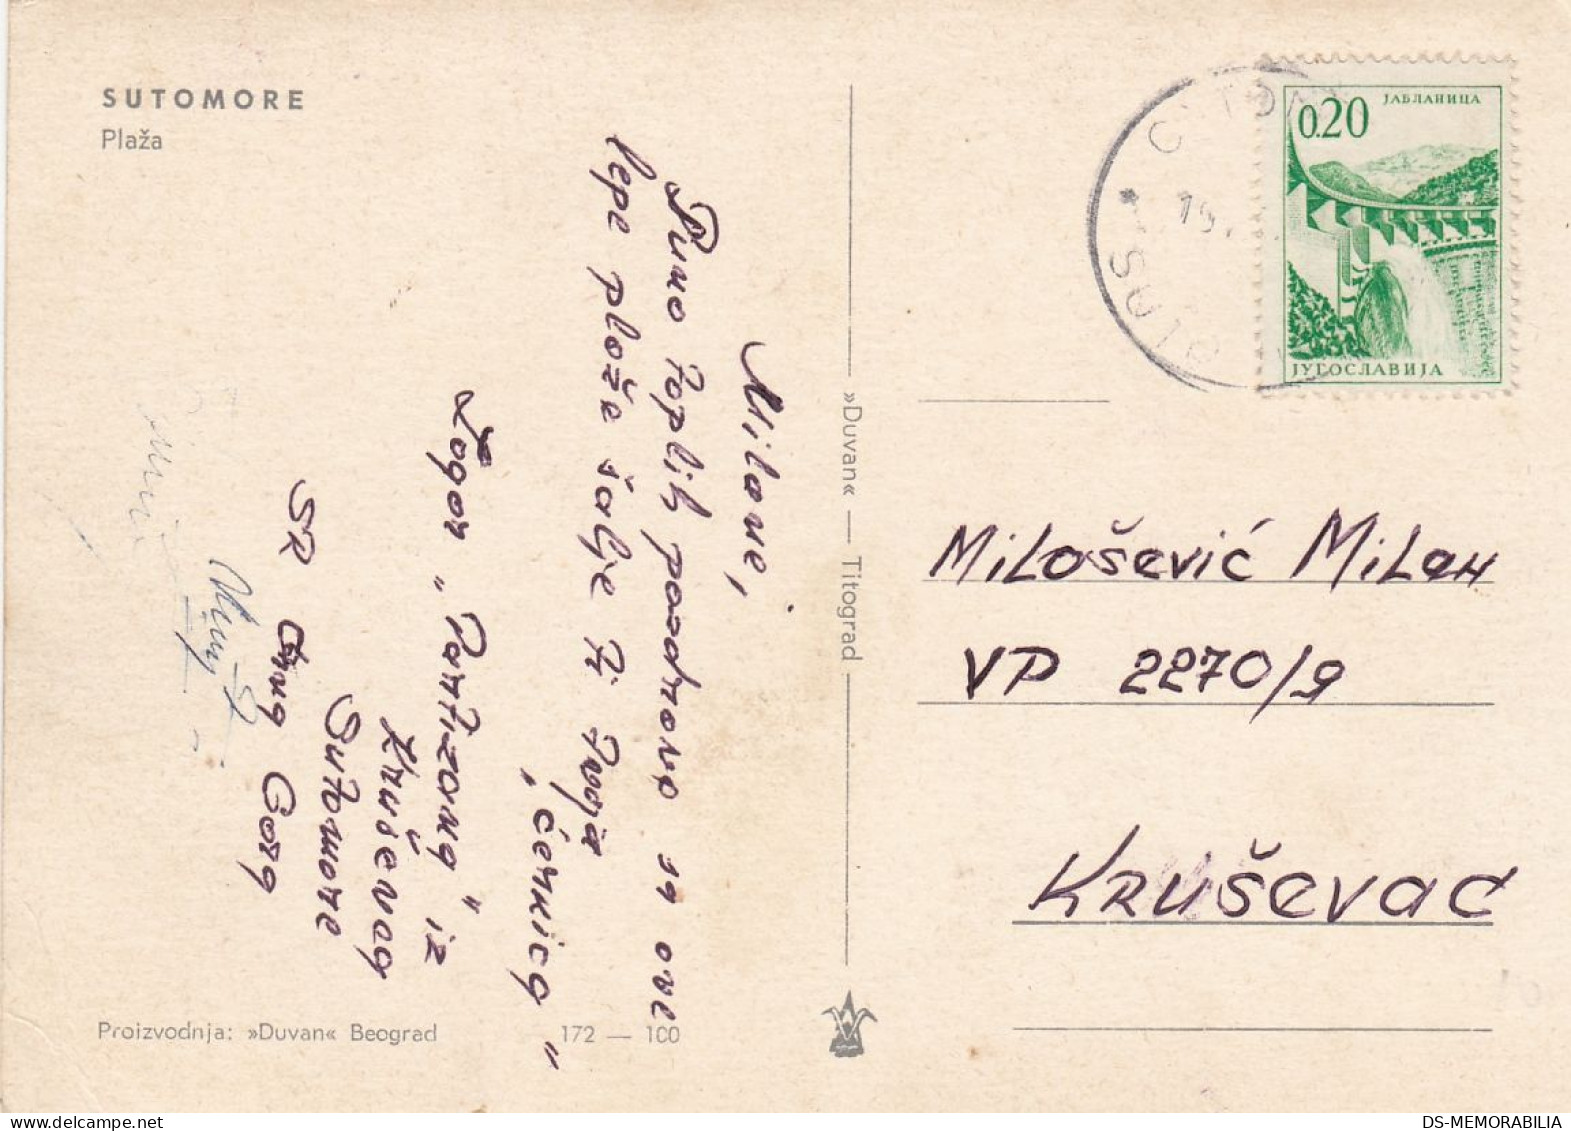 SUTOMORE
Plaža
Milane,
Puno toplih pozdrava sa ove
lepe plaže šalje Ti Tvoja
„ćerkica"
Logor „Partizana" iz
Kruševca
Sutomore
SR Crna Gora
Proizvodnja: »Duvan« Beograd
172 — 100
»Duvan« — Titograd
0.20
ЈАБЛАНИЦА
ЈУГОСЛАВИЈА
Milošević Milan
VP 2270/9
Kruševac
DS-MEMORABILIA